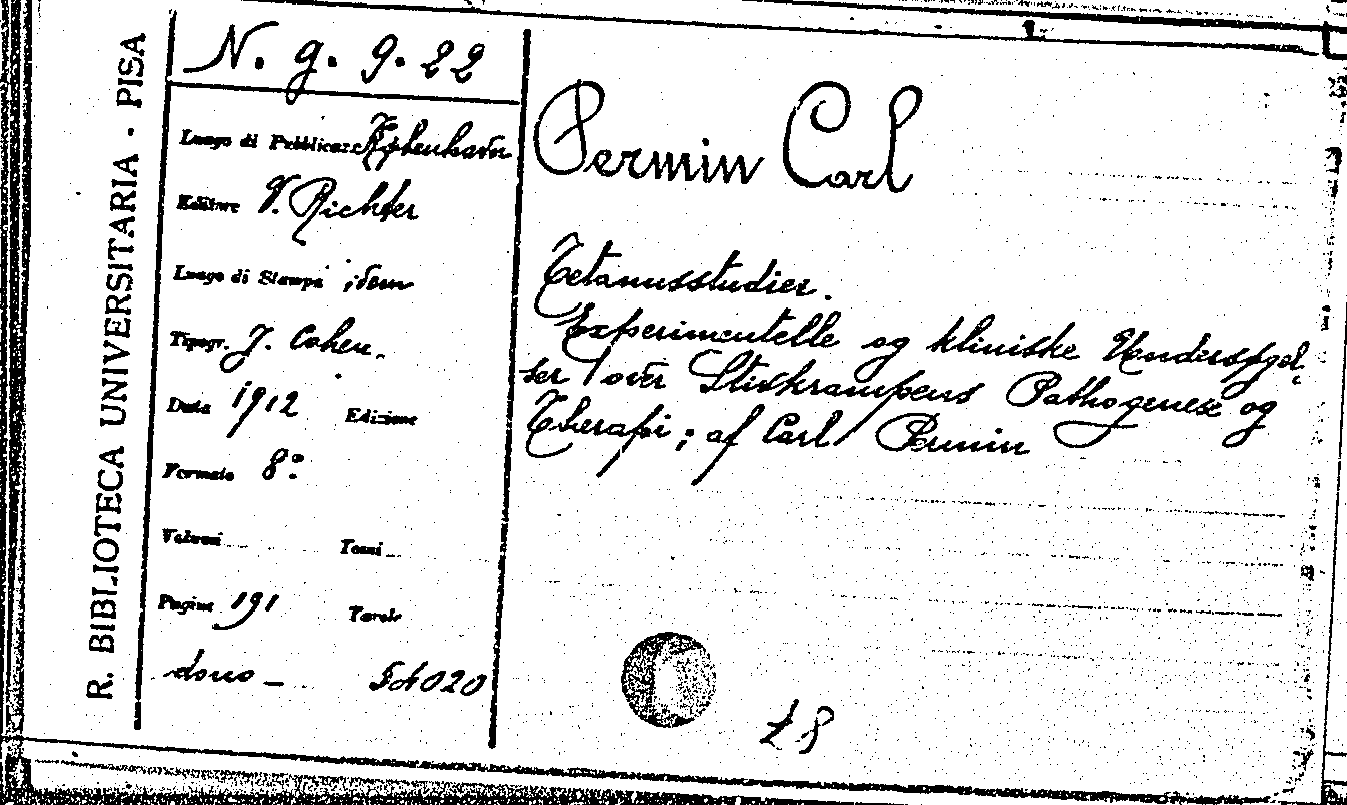 R. BIBLIOTECA UNIVERSITARIA - PISA
N. g. 9. 22
Luogo di Pubblicaz. København
Editore V. Richter
Luogo di Stampa idem
Tipogr. J. Cohen.
Data 1912 Edizione
Formato 8:
Volumi Tomi
Pagine 191 Tavole
dono -
Permin Carl
Tetanusstudier.
Experimentelle og kliniske Undersøgel
ser over Stivkrampens Pathogenese og
Therapi; af Carl Permin